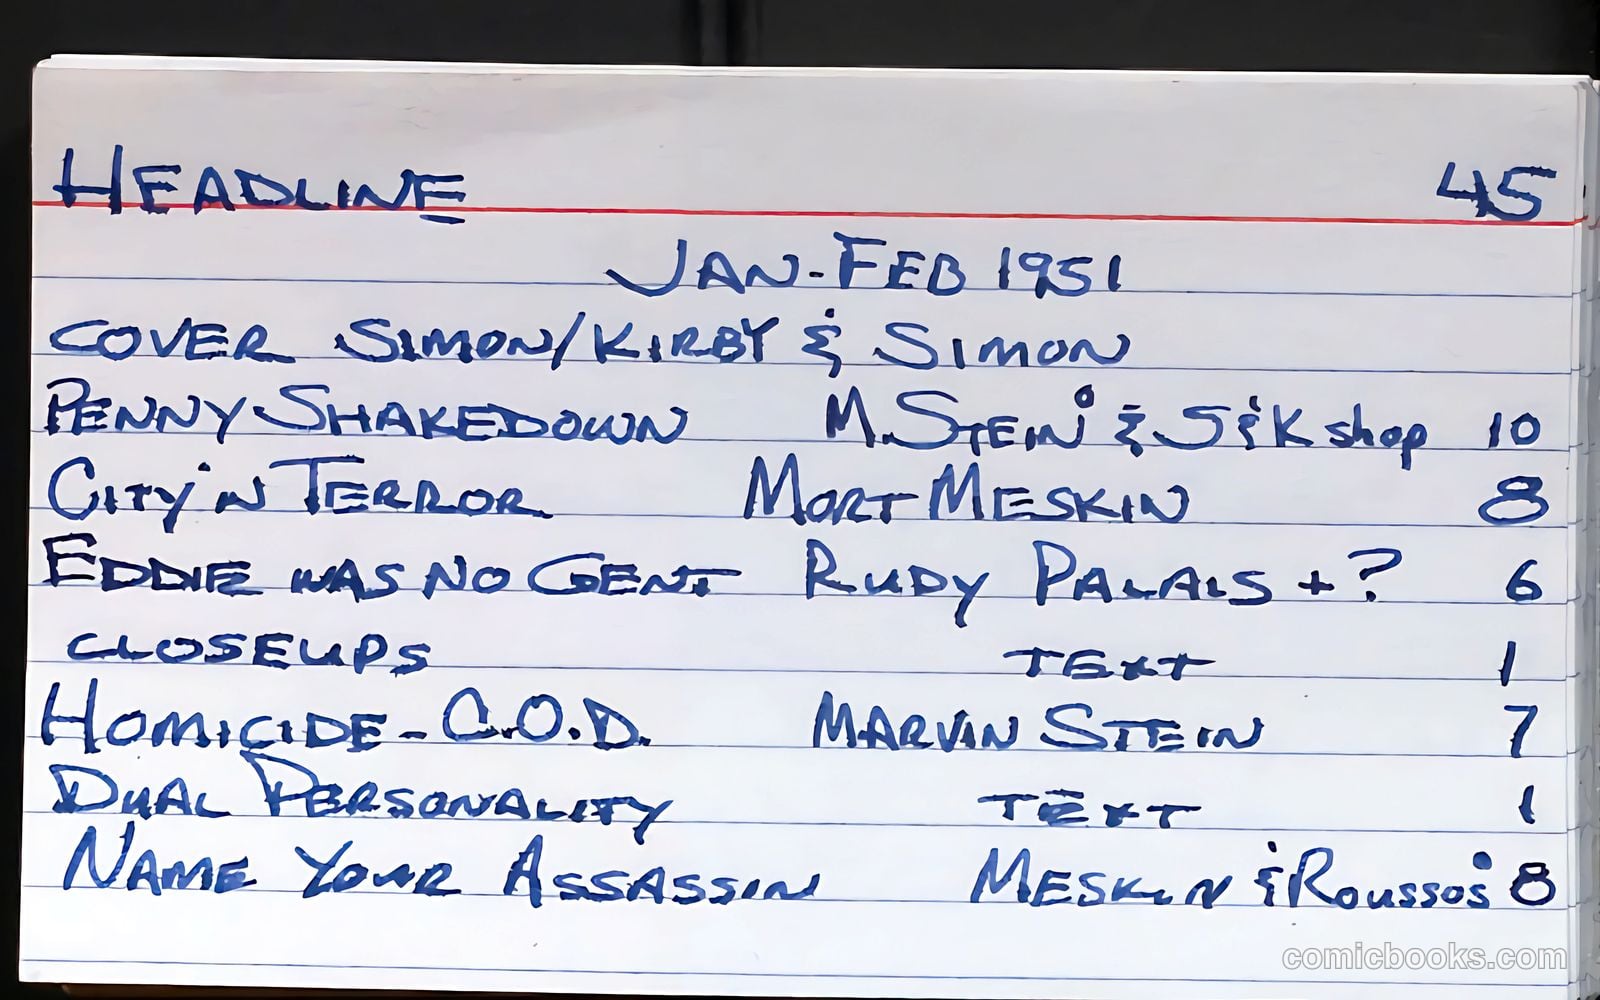 HEADLINE 45
JAN-FEB 1951
COVER SIMON/KIRBY & SIMON
PENNY SHAKEDOWN M. STEIN & S&K shop 10
CITY IN TERROR MORT MESKIN 8
EDDIE WAS NO GENT RUDY PALAIS + ? 6
CLOSEUPS TEXT 1
HOMICIDE - C.O.D. MARVIN STEIN 7
DUAL PERSONALITY TEXT 1
NAME YOUR ASSASSIN MESKIN & ROUSSOS 8
comicbooks.com